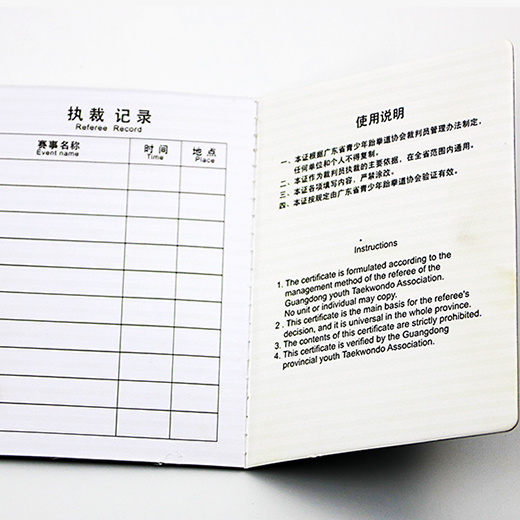 执裁 记录
Referee Record
赛事名称 时间 地点
Event name Time Place
使用说明
一、本证根据广东省青少年跆拳道协会裁判员管理办法制定，
任何单位和个人不得复制。
二、本证作为裁判员执裁的主要依据，在全省范围内通用。
三、本证各项填写内容，严禁涂改。
四、本证按规定由广东省青少年跆拳道协会验证有效。
Instructions
1. The certificate is formulated according to the
management method of the referee of the
Guangdong youth Taekwondo Association.
No unit or individual may copy.
2 . This certificate is the main basis for the referee's
decision, and it is universal in the whole province.
3. The contents of this certificate are strictly prohibited.
4. This certificate is verified by the Guangdong
provincial youth Taekwondo Association.